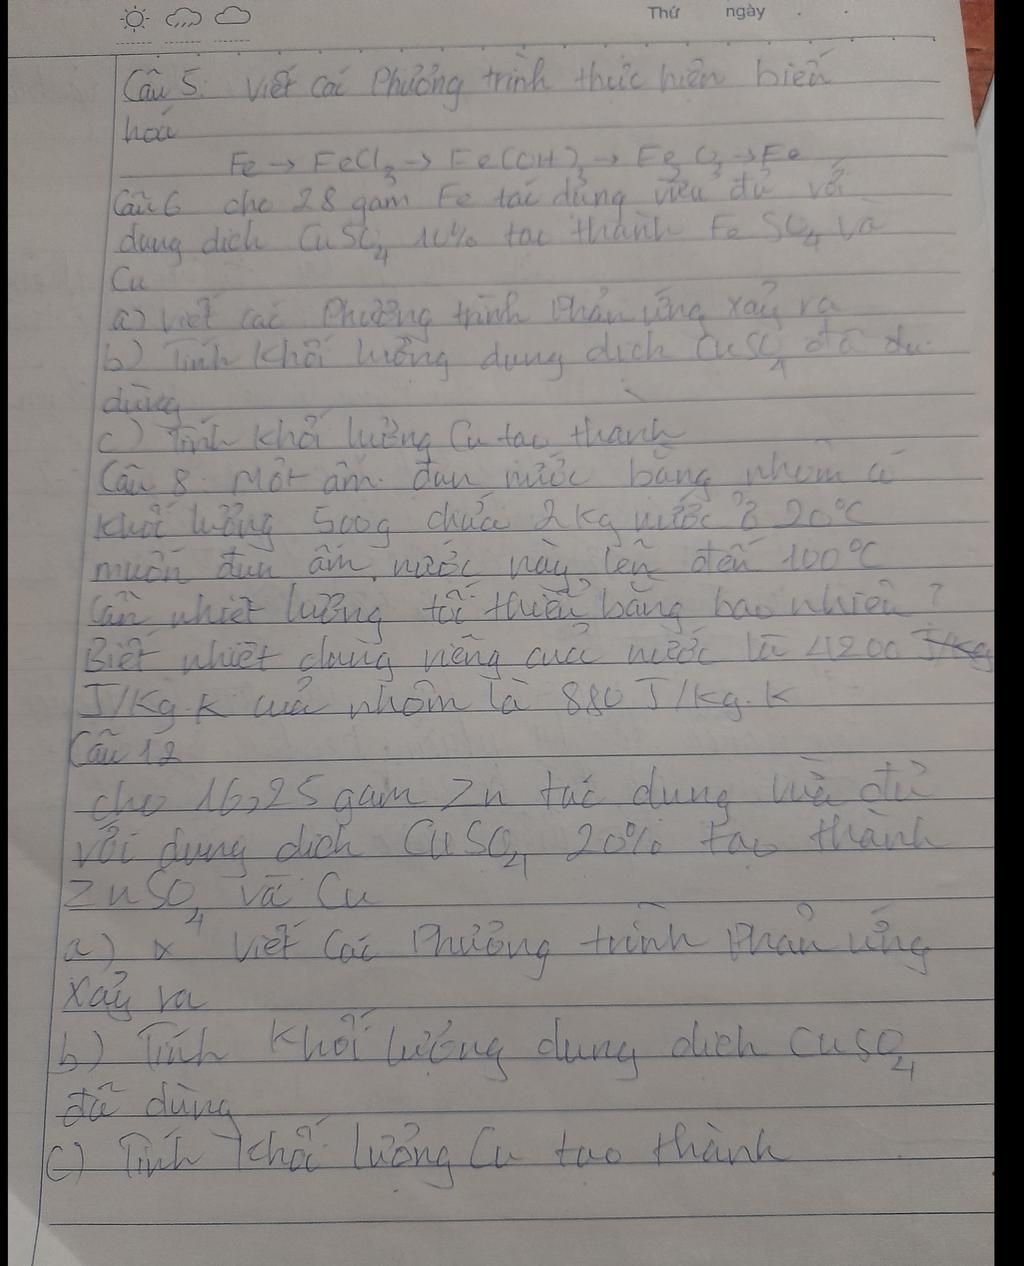 Thứ ngày
Câu 5: Viết các Phương trình thực hiện biến
hoá
Fe → FeCl3 → Fe(OH)3 → Fe2O3 → Fe
Câu 6 cho 28 gam Fe tác dụng vừa đủ với
dung dịch CuSO4 10% tạo thành FeSO4 và
Cu
a) Viết các Phương trình Phản ứng xảy ra
b) Tính Khối lượng dung dịch CuSO4 đã du
dùng
c) Tính khối lượng Cu tạo thành
Câu 8. Một ấm đun nước bằng nhôm có
khối lượng 500g chứa 2kg nước ở 20°C
muốn đun ấm nước này lên đến 100°C
Cần nhiệt lượng tối thiểu bằng bao nhiêu?
Biết nhiệt dung riêng của nước là 4200 J/kg
J/kg.k của nhôm là 880 J/kg.k
Câu 12
cho 16,25 gam Zn tác dụng vừa đủ
với dung dịch CuSO4 20% tạo thành
ZnSO4 và Cu
a) x Viết các Phương trình Phản ứng
xảy ra
b) Tính Khối lượng dung dịch CuSO4
đã dùng
c) Tính khối lượng Cu tạo thành